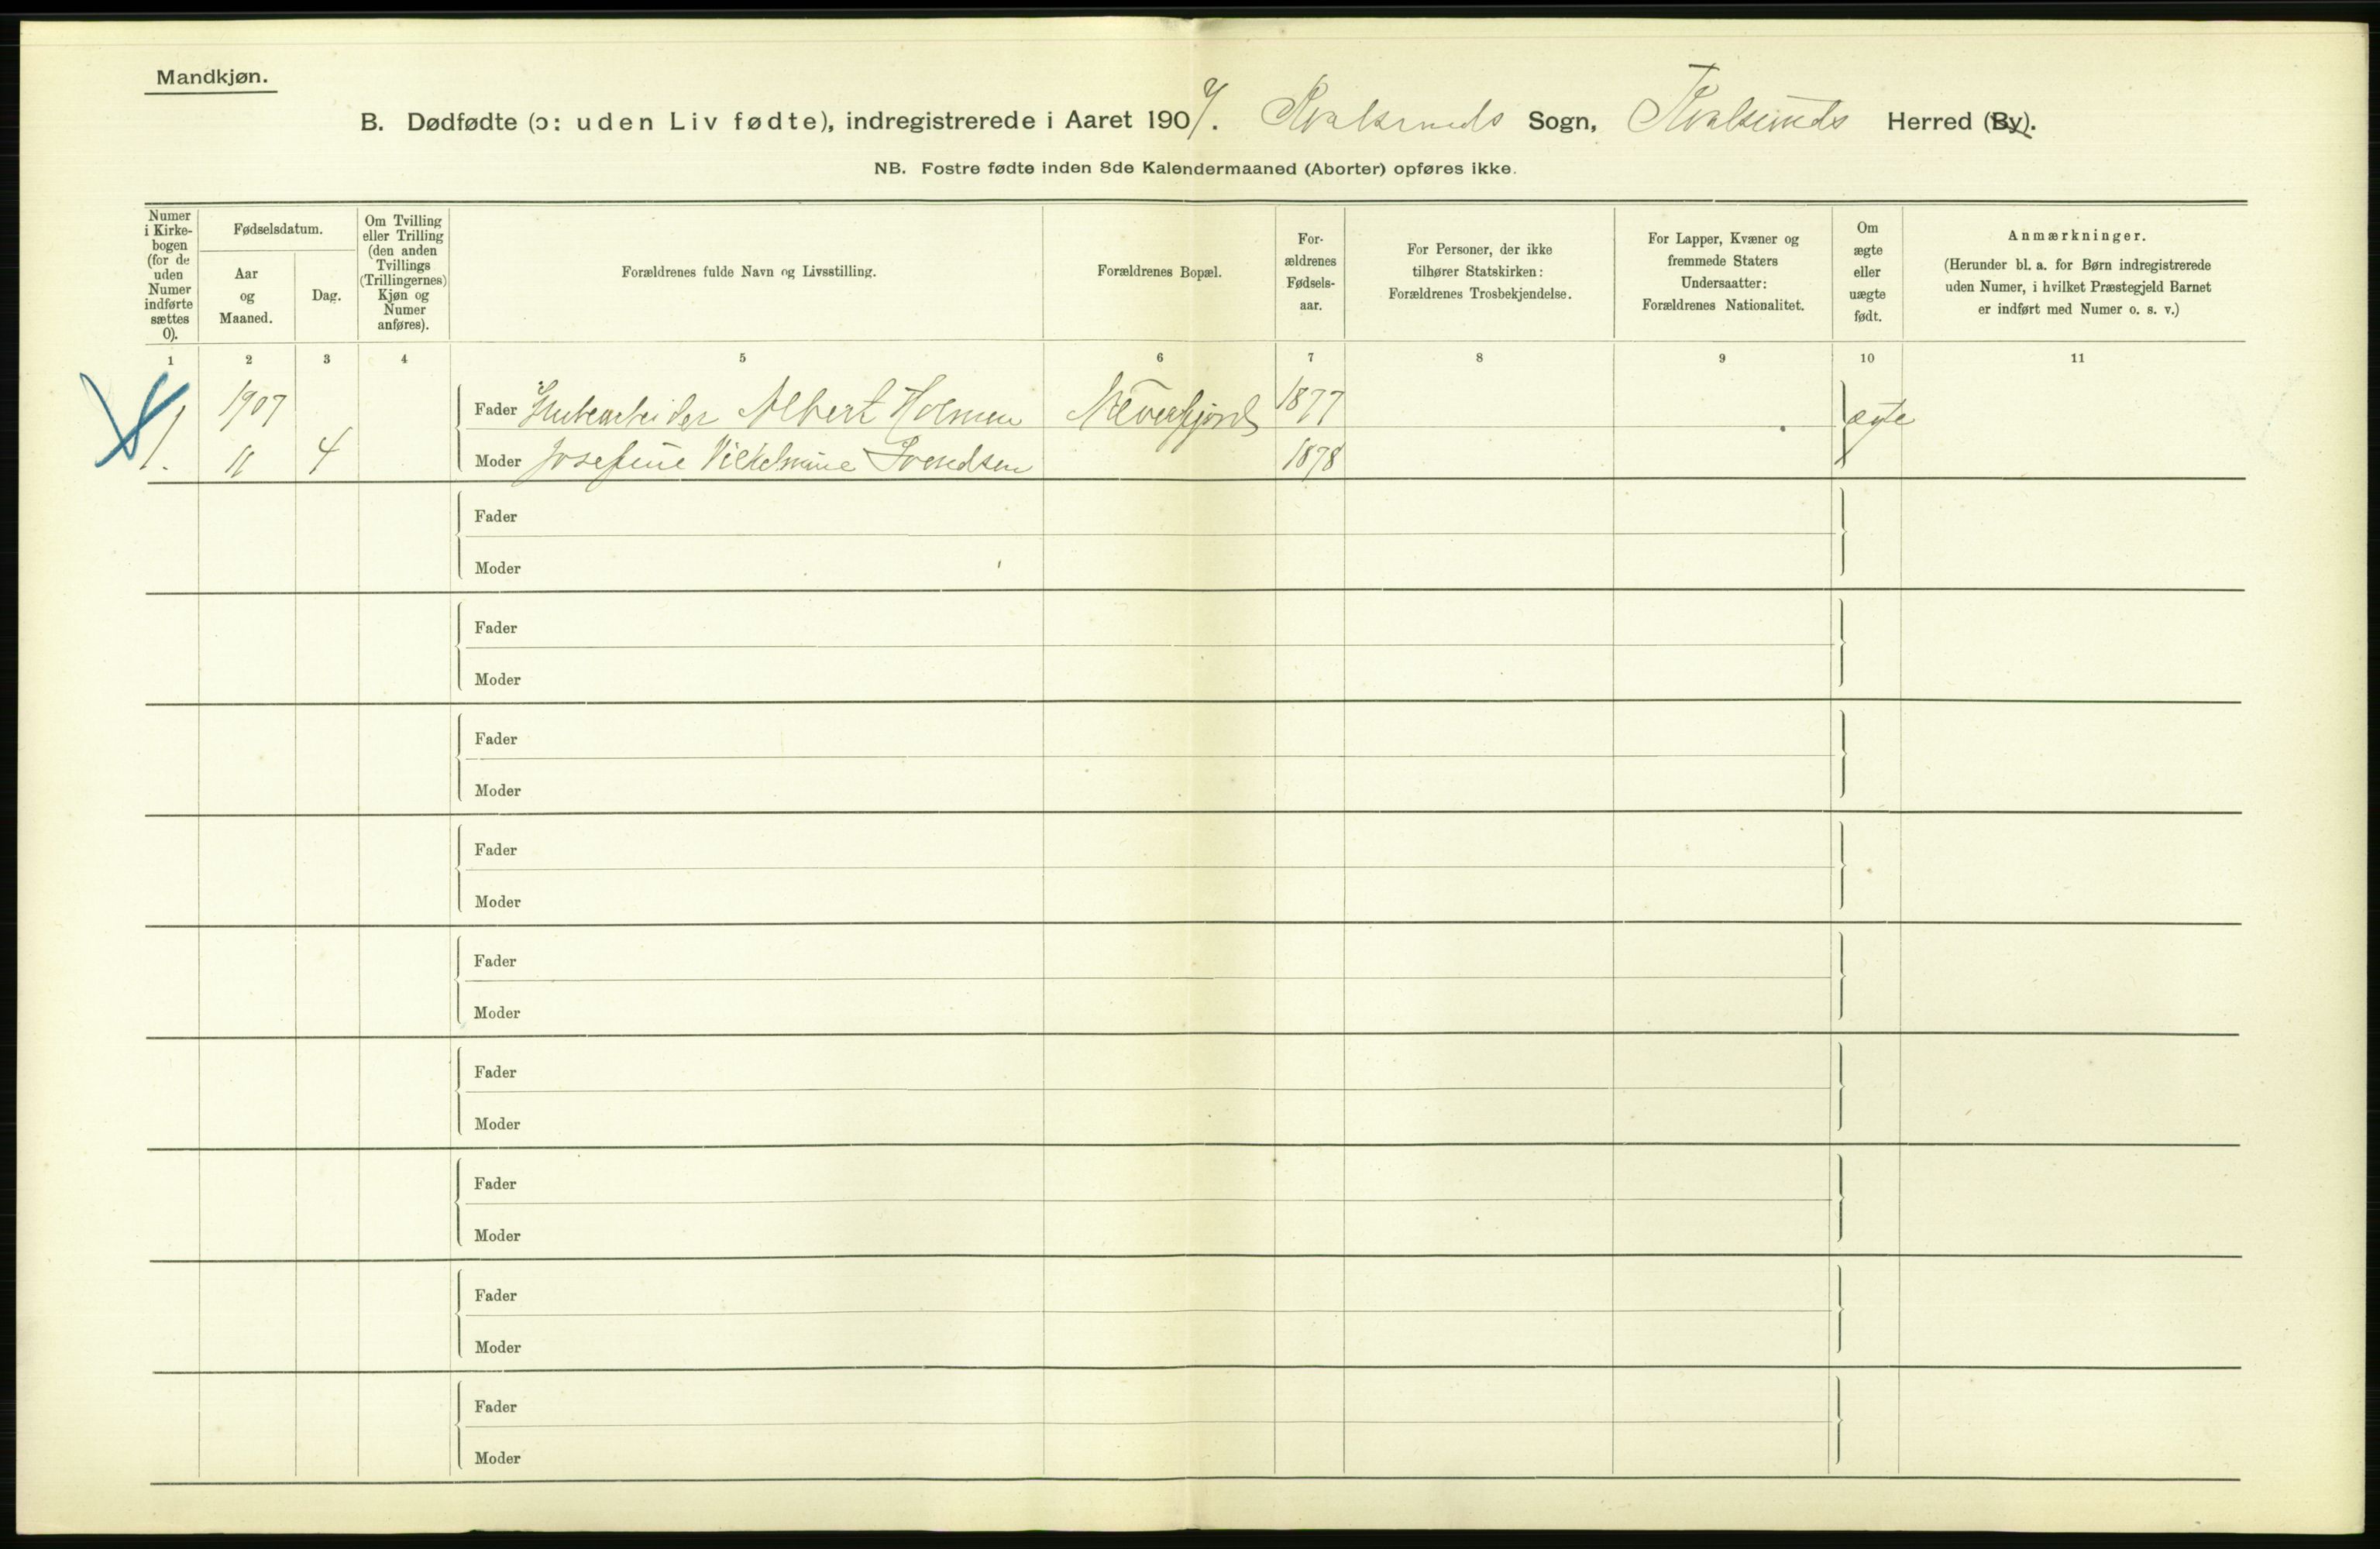 Mandkjøn.
B. Dødfødte (ɔ: uden Liv fødte), indregistrerede i Aaret 1907. Kvalsunds Sogn, Kvalsunds Herred (By).
NB. Fostre fødte inden 8de Kalendermaaned (Aborter) opføres ikke.
Numer
i Kirke-
bogen
(for de
uden
Numer
indførte
sættes
0).
Fødselsdatum.
Aar
og
Maaned.
Dag.
Om Tvilling
eller Trilling
(den anden
Tvillings
(Trillingernes)
Kjøn og
Numer
anføres).
Forældrenes fulde Navn og Livsstilling.
Forældrenes Bopæl.
For-
ældrenes
Fødsels-
aar.
For Personer, der ikke
tilhører Statskirken:
Forældrenes Trosbekjendelse.
For Lapper, Kvæner og
fremmede Staters
Undersaatter:
Forældrenes Nationalitet.
Om
ægte
eller
uægte
født.
Anmærkninger.
(Herunder bl. a. for Børn indregistrerede
uden Numer, i hvilket Præstegjeld Barnet
er indført med Numer o. s. v.)
1 2 3 4 5 6 7 8 9 10 11
1907
Fader Grubearbeider Albert Holmen Neverfjord 1877 ægte
1. 11 4 Moder Josefine Vilhelmine Svendsen 1878
Fader
Moder
Fader
Moder
Fader
Moder
Fader
Moder
Fader
Moder
Fader
Moder
Fader
Moder
Fader
Moder
Fader
Moder